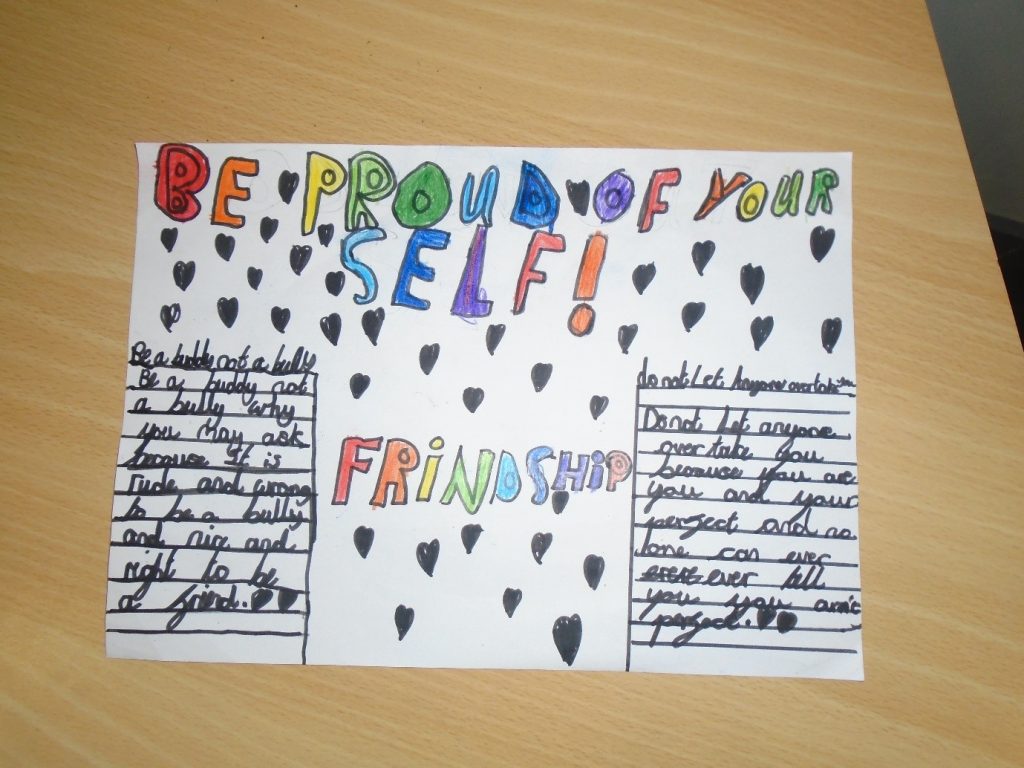 BE PROUD OF YOUR
SELF!
Be a buddy not a bully
Be a buddy not
a bully why
you may ask
because It is
rude and wrong
to be a bully
and nice and
right to be
a friend.
FRiNDSHiP
do not Let Anyone overtake you
Do not Let anyone
over take you
because you are
you and your
perfect and no
one can ever
ever tell
you you arn't
perfect.